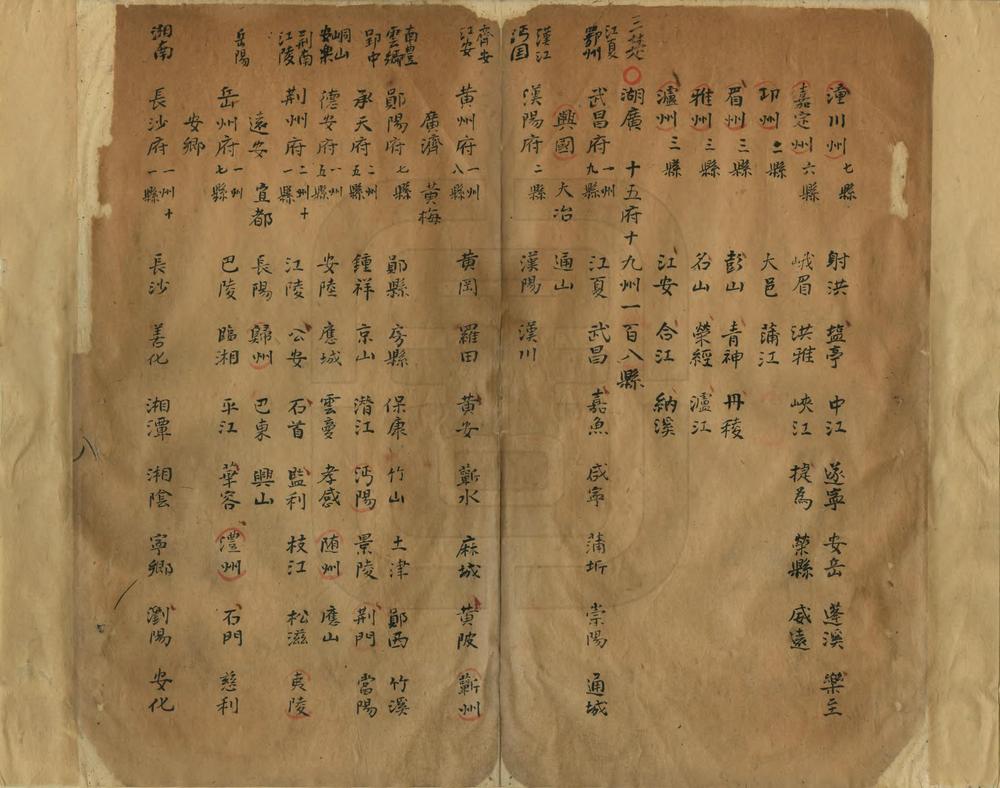 潼川州 七縣 射洪 塩亭 中江 遂寧 安岳 蓬溪 樂至
嘉定州 六縣 峨眉 洪雅 峽江 揵為 榮縣 威遠
邛州 二縣 大邑 蒲江
眉州 三縣 彭山 青神 丹稜
雅州 三縣 名山 榮經 瀘江
瀘州 三縣 江安 合江 納溪
三楚 湖廣 十五府十九州一百八縣
江夏 鄂州 武昌府 一州九縣 江夏 武昌 嘉魚 咸寧 蒲圻 崇陽 通城
興國 大冶 通山
漢江 沔国 漢陽府 二縣 漢陽 漢川
齊安 江安 黃州府 一州八縣 黃岡 羅田 黃安 蘄水 麻城 黃陂 蘄州
廣濟 黃梅
南豊 雲鄉 鄖陽府 七縣 鄖縣 房縣 保康 竹山 土津 鄖西 竹溪
郢中 承天府 二州五縣 鍾祥 京山 潛江 沔陽 景陵 荆門 當陽
峒山 安樂 德安府 一州五縣 安陸 應城 雲夢 孝感 随州 應山
荆南 江陵 荆州府 二州十一縣 江陵 公安 石首 監利 枝江 松滋 夷陵
遠安 宜都 長陽 歸州 巴東 興山
岳陽 岳州府 一州七縣 巴陵 臨湘 平江 華容 澧州 石門 慈利
安鄉
湘南 長沙府 一州十一縣 長沙 善化 湘潭 湘陰 寧鄉 瀏陽 安化